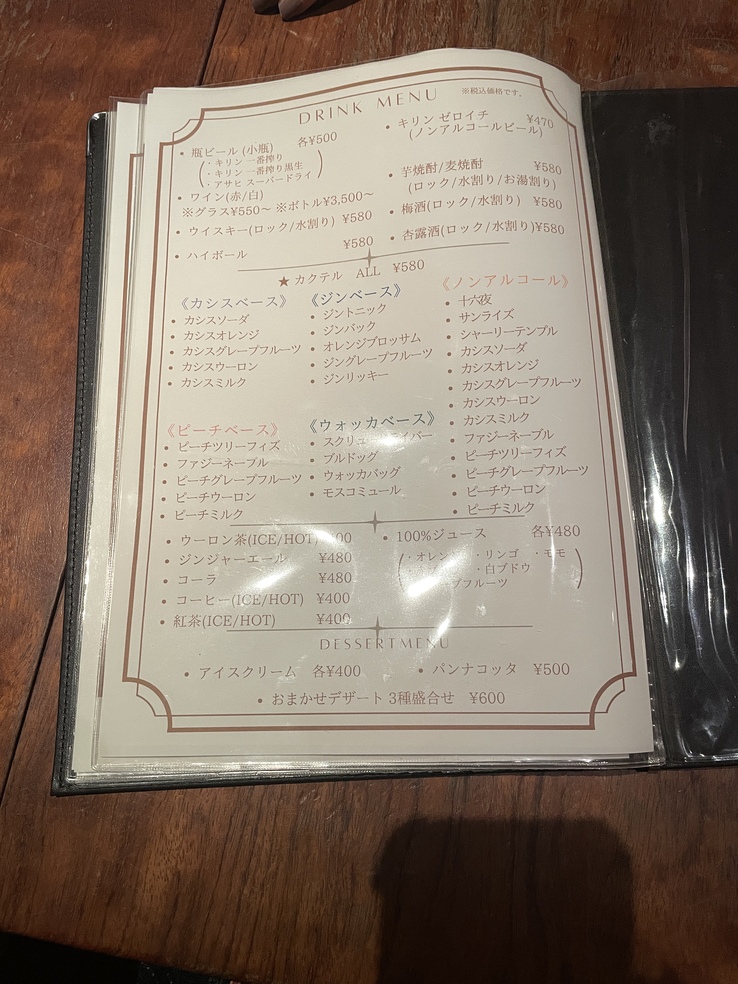 DRINK MENU
※税込価格です。
・瓶ビール (小瓶) 各¥500
・キリン 一番搾り
・キリン 一番搾り黒生
・アサヒ スーパードライ
・ワイン(赤/白)
※グラス¥550～ ※ボトル¥3,500～
・ウイスキー(ロック/水割り) ¥580
・ハイボール ¥580
・キリン ゼロイチ ¥470
(ノンアルコールビール)
・芋焼酎/麦焼酎 ¥580
(ロック/水割り/お湯割り)
・梅酒(ロック/水割り) ¥580
・杏露酒(ロック/水割り)¥580
★カクテル ALL ¥580
《カシスベース》
・カシスソーダ
・カシスオレンジ
・カシスグレープフルーツ
・カシスウーロン
・カシスミルク
《ジンベース》
・ジントニック
・ジンバック
・オレンジブロッサム
・ジングレープフルーツ
・ジンリッキー
《ノンアルコール》
・十六夜
・サンライズ
・シャーリーテンプル
・カシスソーダ
・カシスオレンジ
・カシスグレープフルーツ
・カシスウーロン
・カシスミルク
・ファジーネーブル
・ピーチツリーフィズ
・ピーチグレープフルーツ
・ピーチウーロン
・ピーチミルク
《ピーチベース》
・ピーチツリーフィズ
・ファジーネーブル
・ピーチグレープフルーツ
・ピーチウーロン
・ピーチミルク
《ウォッカベース》
・ブルドッグ
・ウォッカバッグ
・モスコミュール
・ウーロン茶(ICE/HOT)
・ジンジャーエール ¥480
・コーラ ¥480
・コーヒー(ICE/HOT) ¥400
・紅茶(ICE/HOT) ¥400
・100%ジュース 各¥480
・リンゴ ・モモ
・白ブドウ
DESSERTMENU
・アイスクリーム 各¥400
・パンナコッタ ¥500
・おまかせデザート 3種盛合せ ¥600